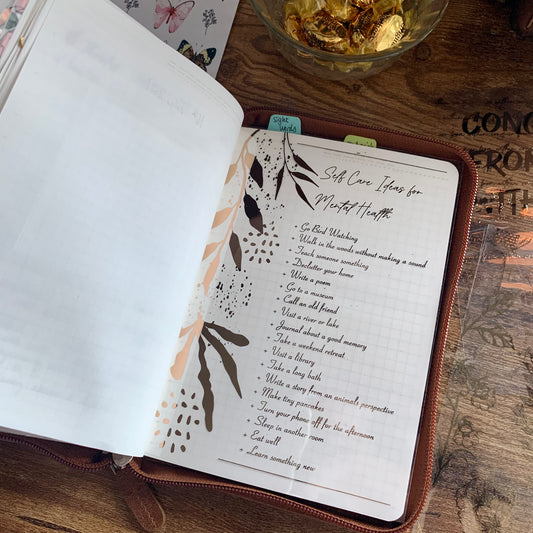 Sight
Self Care Ideas for
Mental Health
+ Go Bird Watching
+ Walk in the woods without making a sound
+ Teach someone something
+ Declutter your home
+ Write a poem
+ Go to a museum
+ Call an old friend
+ Visit a river or lake
+ Journal about a good memory
+ Take a weekend retreat
+ Visit a library
+ Take a long bath
+ Write a story from an animals perspective
+ Make tiny pancakes
+ Turn your phone off for the afternoon
+ Sleep in another room
+ Eat well
+ Learn something new
CONG
FROM